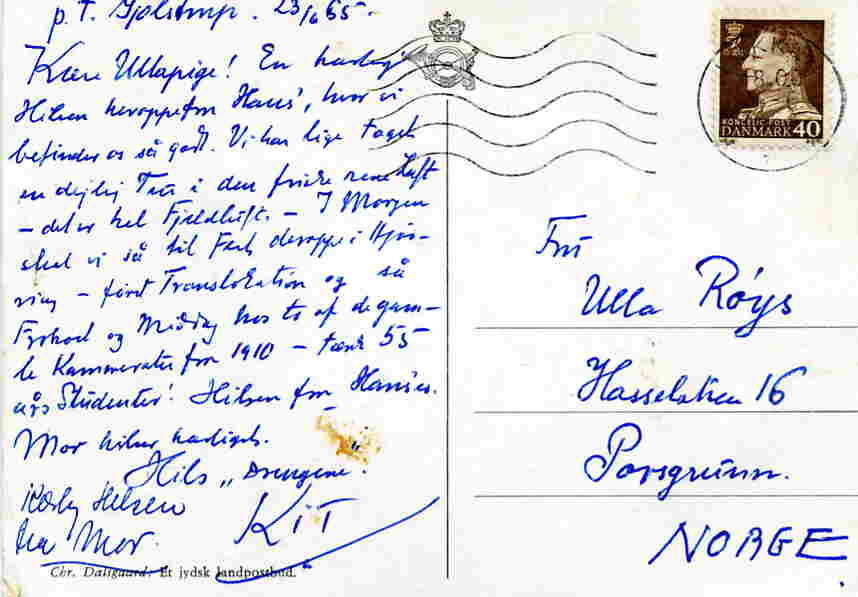 p. T. Gjølstrup. 23/6 65.
Kære Ullapige! En kærlig
Hilsen heroppe fra Hans', hvor vi
befinder os så godt. Vi har lige taget
en dejlig Tur i den friske rene Luft
- det er hel Fjeldluft. - I Morgen
skal vi så til Fest deroppe i Hjør-
ring - først Translokation og så
Frokost og Middag hos to af de gam-
le Kammerater fra 1910 - tænk 55
års Studenter! Hilsen fra Hans'es.
Mor hilser kærligst.
Hils „Drengene".
Kærlig Hilsen
fra Mor.
KIT
Chr. Dalsgaard: Et jydsk landpostbud.
KONGELIG POST
DANMARK 40
Fru
Ulla Røys
16
Porsgrunn.
NORGE